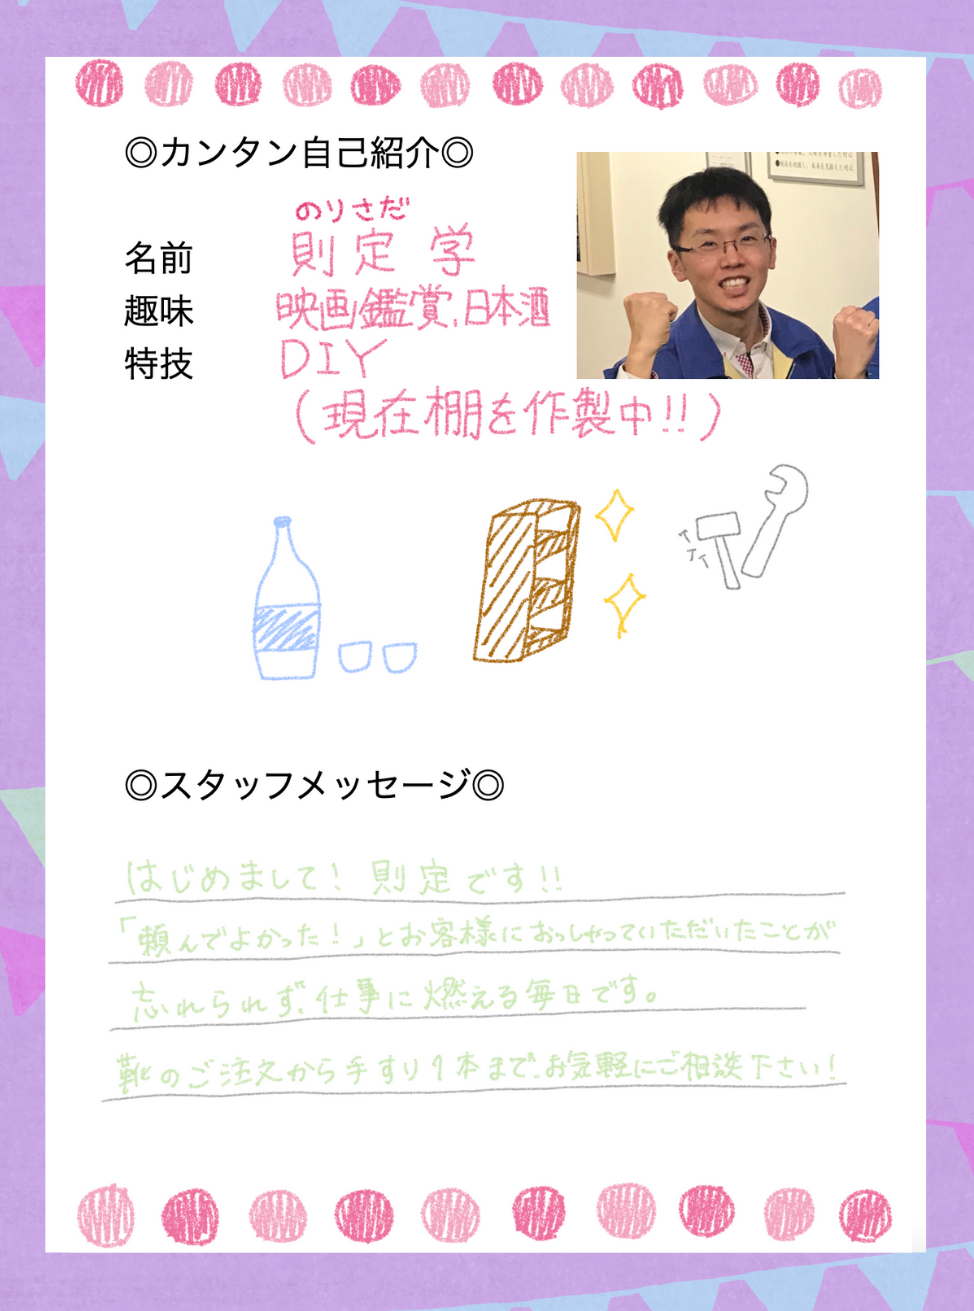 ◎カンタン自己紹介◎
のりさだ
名前 則定 学
趣味 映画鑑賞、日本酒
特技 DIY
(現在棚を作製中!!)
◎スタッフメッセージ◎
はじめまして! 則定です!!
「頼んでよかった!」とお客様におっしゃっていただいたことが
忘れられず、仕事に燃える毎日です。
靴のご注文から手すり1本まで、お気軽にご相談下さい!